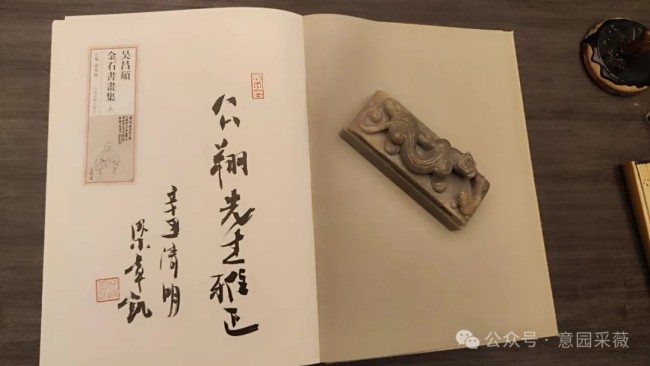 吴昌碩
金石書畫集 上
翔先生雅正
辛丑清明
梁章凱
公众号 · 意园采薇